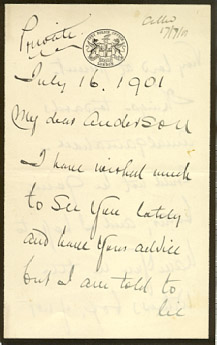 Private
July 16. 1901
My dear Anderson
I have wished much
to see you lately
and have your advice
but I am told to
lie